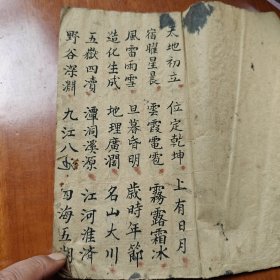 天地初立 位定乾坤 上有日月
宿曜星辰 雲霞電雹 霧露霜冰
風雷雨雪 旦暮昏明 歲時年節
造化生成 地理廣濶 名山大川
五嶽四瀆 潭洞溪源 江河淮濟
野谷深淵 九江八 四海五湖